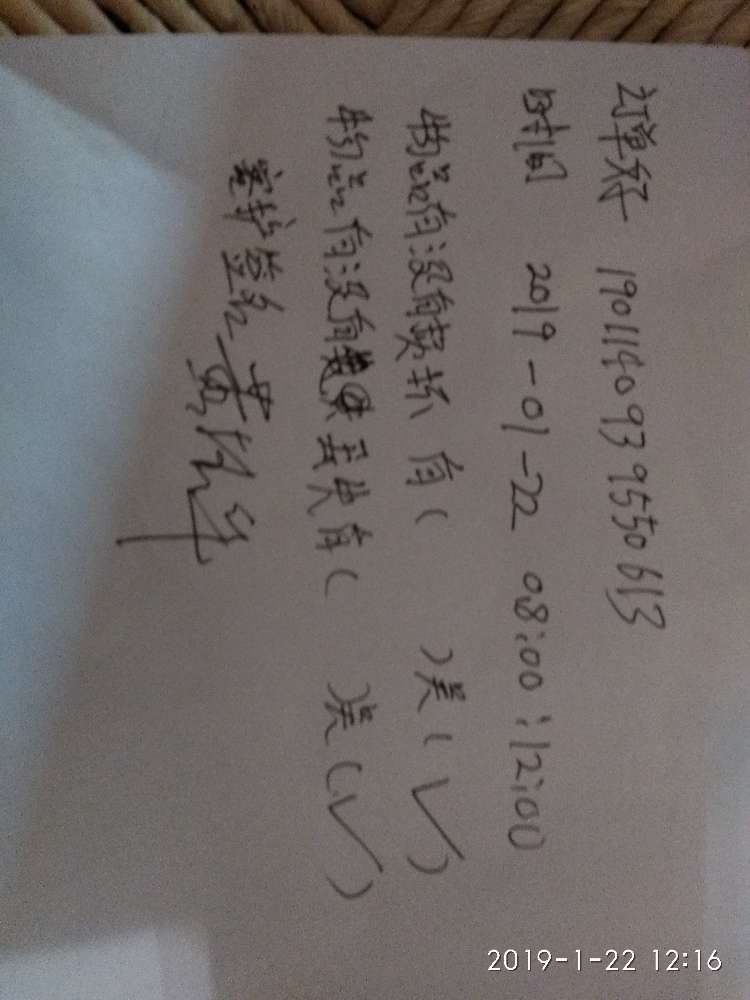 订单好 1901140939550613
时间 2019-01-22 08:00:12:00
物品有没有损坏 有( )吴(✓)
物品有没有丢失有( )吴(✓)
客护签名 黄
2019-1-22 12:16